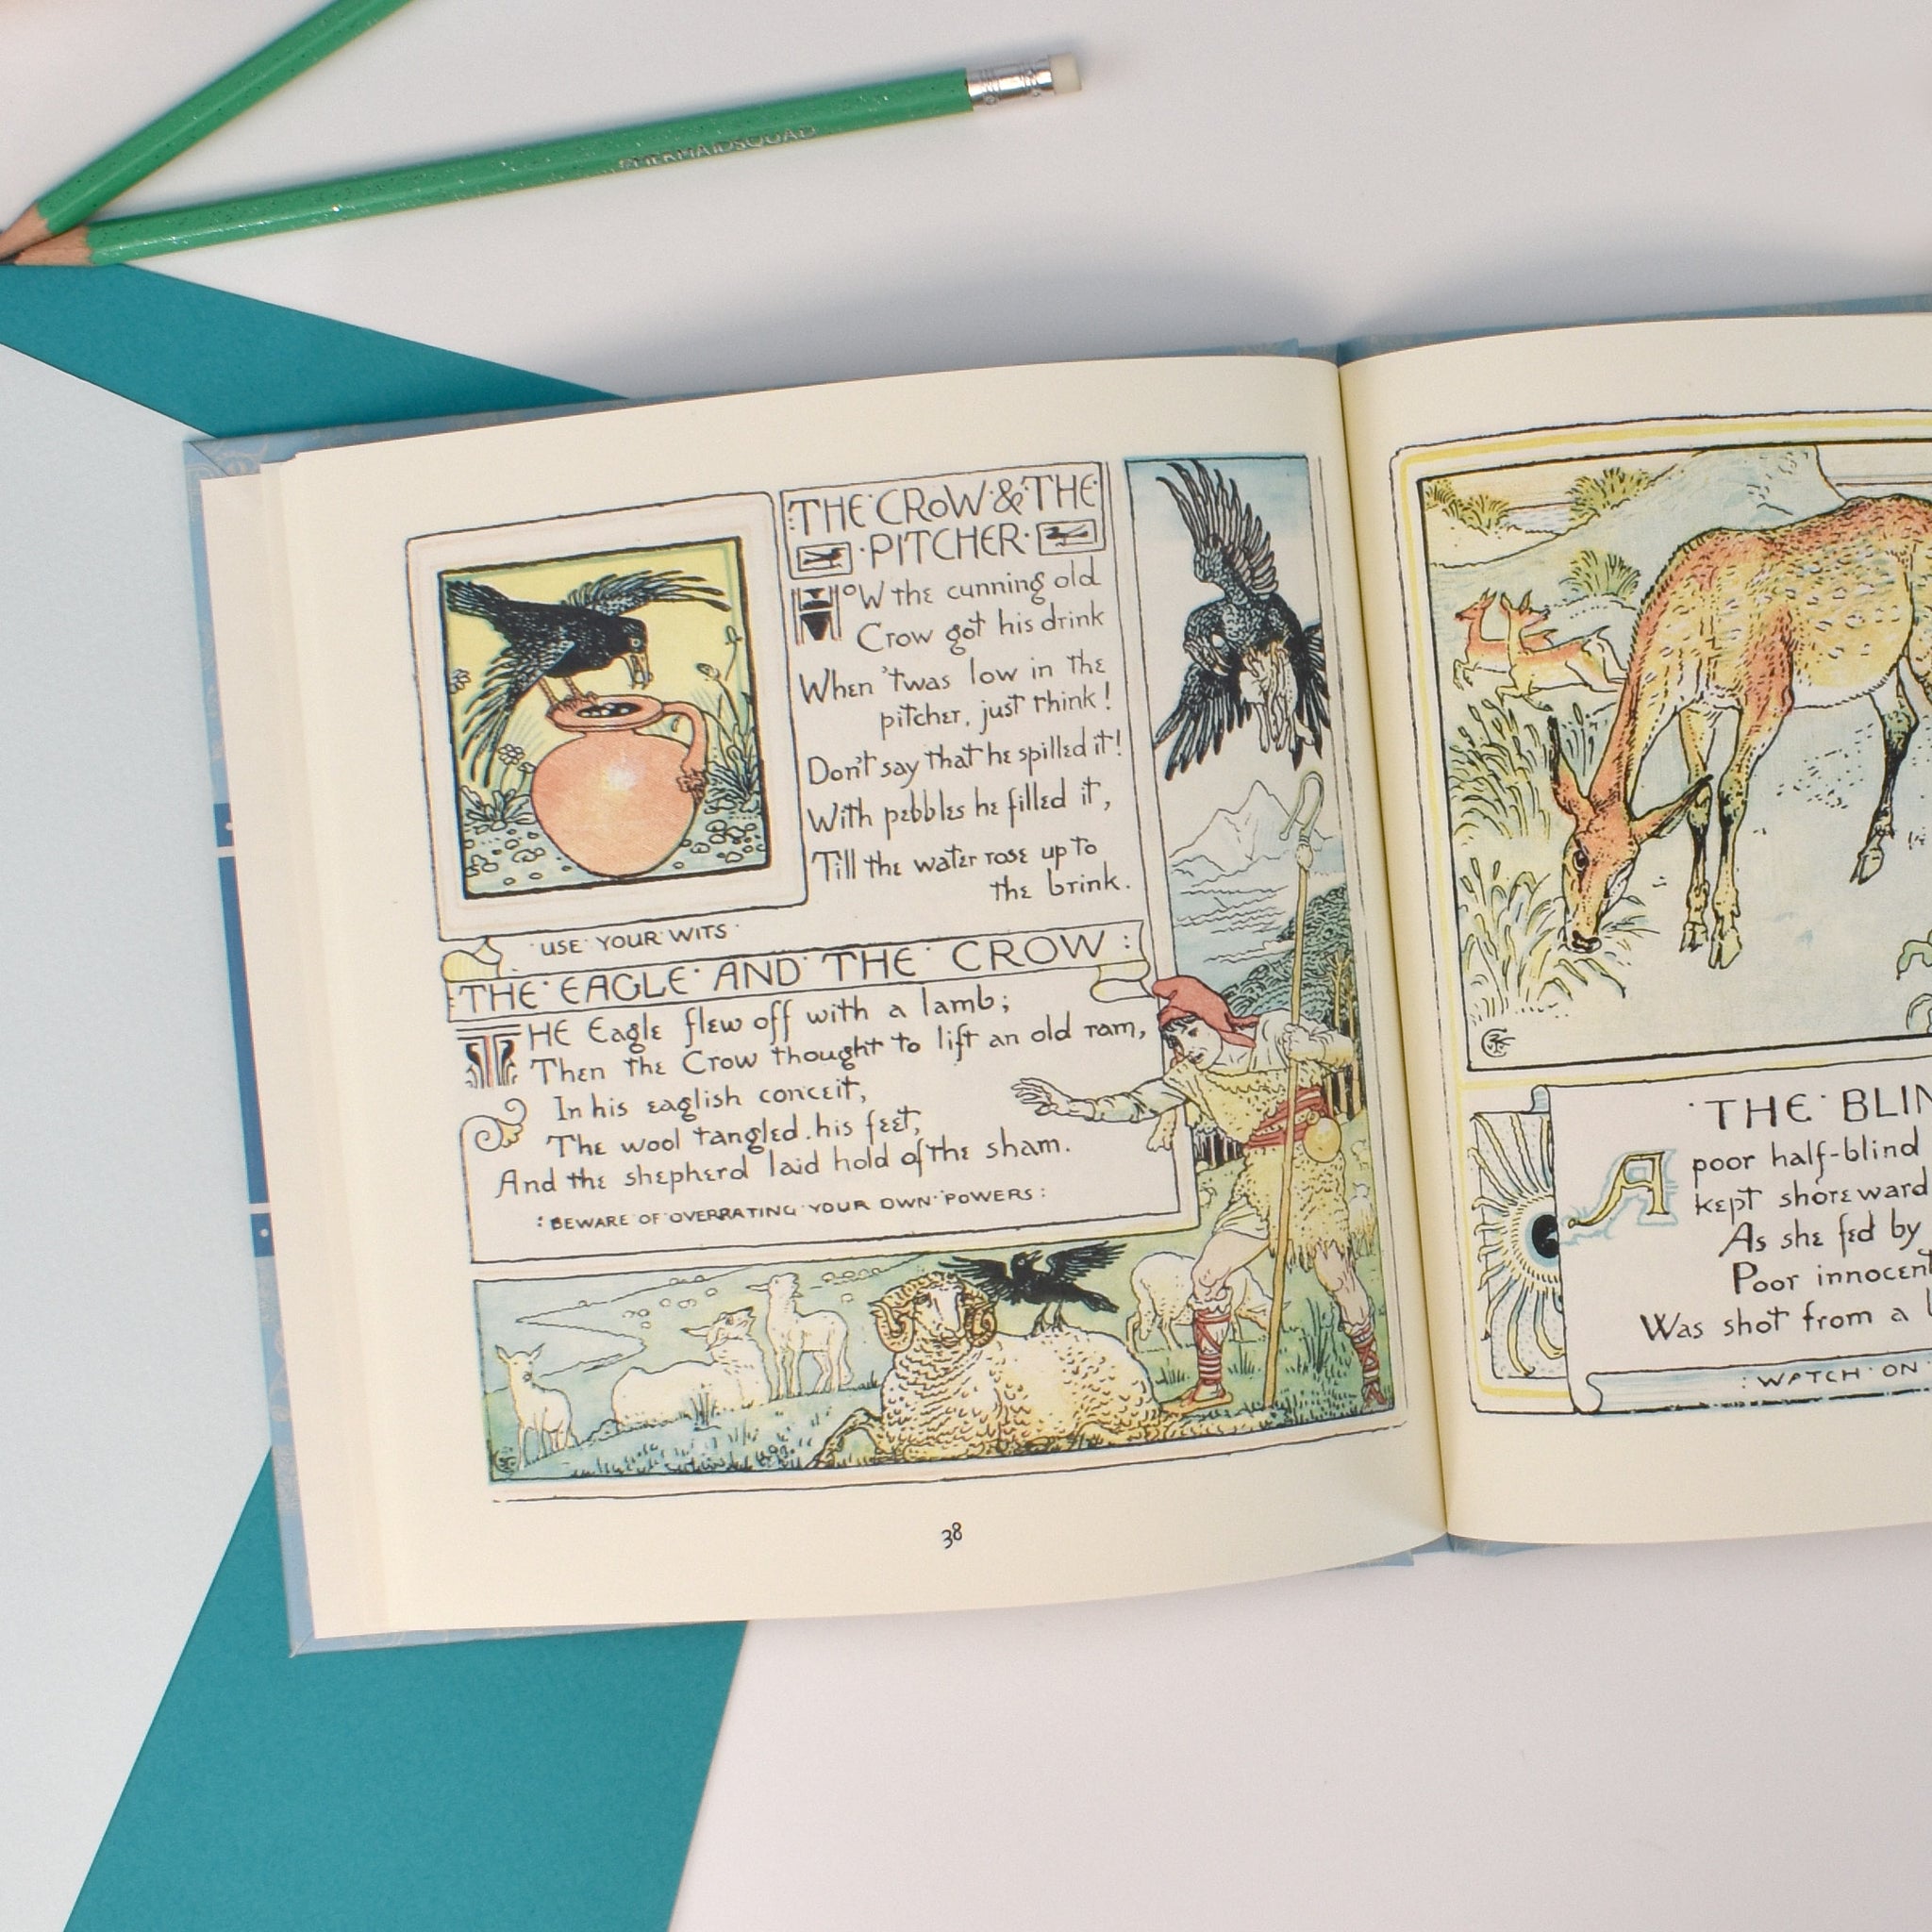 #MERMAIDSQUAD
THE CROW & THE
PITCHER
HOW the cunning old
Crow got his drink
When 'twas low in the
pitcher, just think!
Don't say that he spilled it!
With pebbles he filled it,
Till the water rose up to
the brink.
USE YOUR WITS
THE EAGLE AND THE CROW:
THE Eagle flew off with a lamb;
Then the Crow thought to lift an old ram,
In his eaglish conceit,
The wool tangled his feet,
And the shepherd laid hold of the sham.
:BEWARE OF OVERRATING YOUR OWN POWERS:
38
THE BLIN
A poor half-blind
kept shoreward
As she fed by
Poor innocent
Was shot from a
:WATCH ON